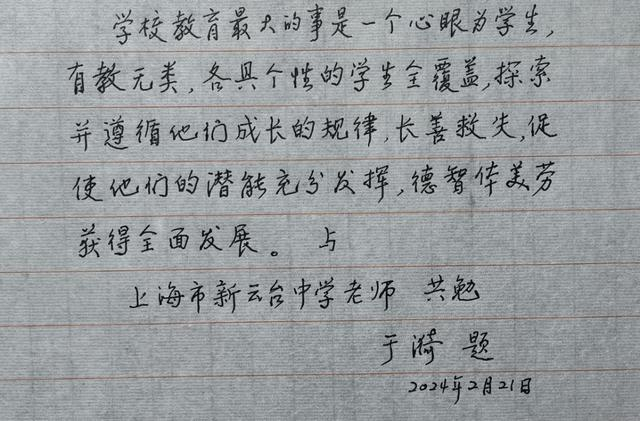 学校教育最大的事是一个心眼为学生,
有教无类,各具个性的学生全覆盖,探索
并遵循他们成长的规律,长善救失,促
使他们的潜能充分发挥,德智体美劳
获得全面发展。 与
上海市新云台中学老师 共勉
于漪 题
2024年2月21日